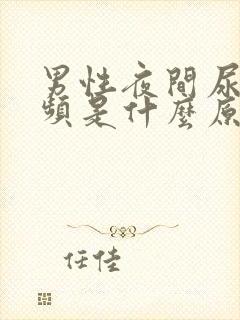 男性夜間尿
頻是什麼原
任佳